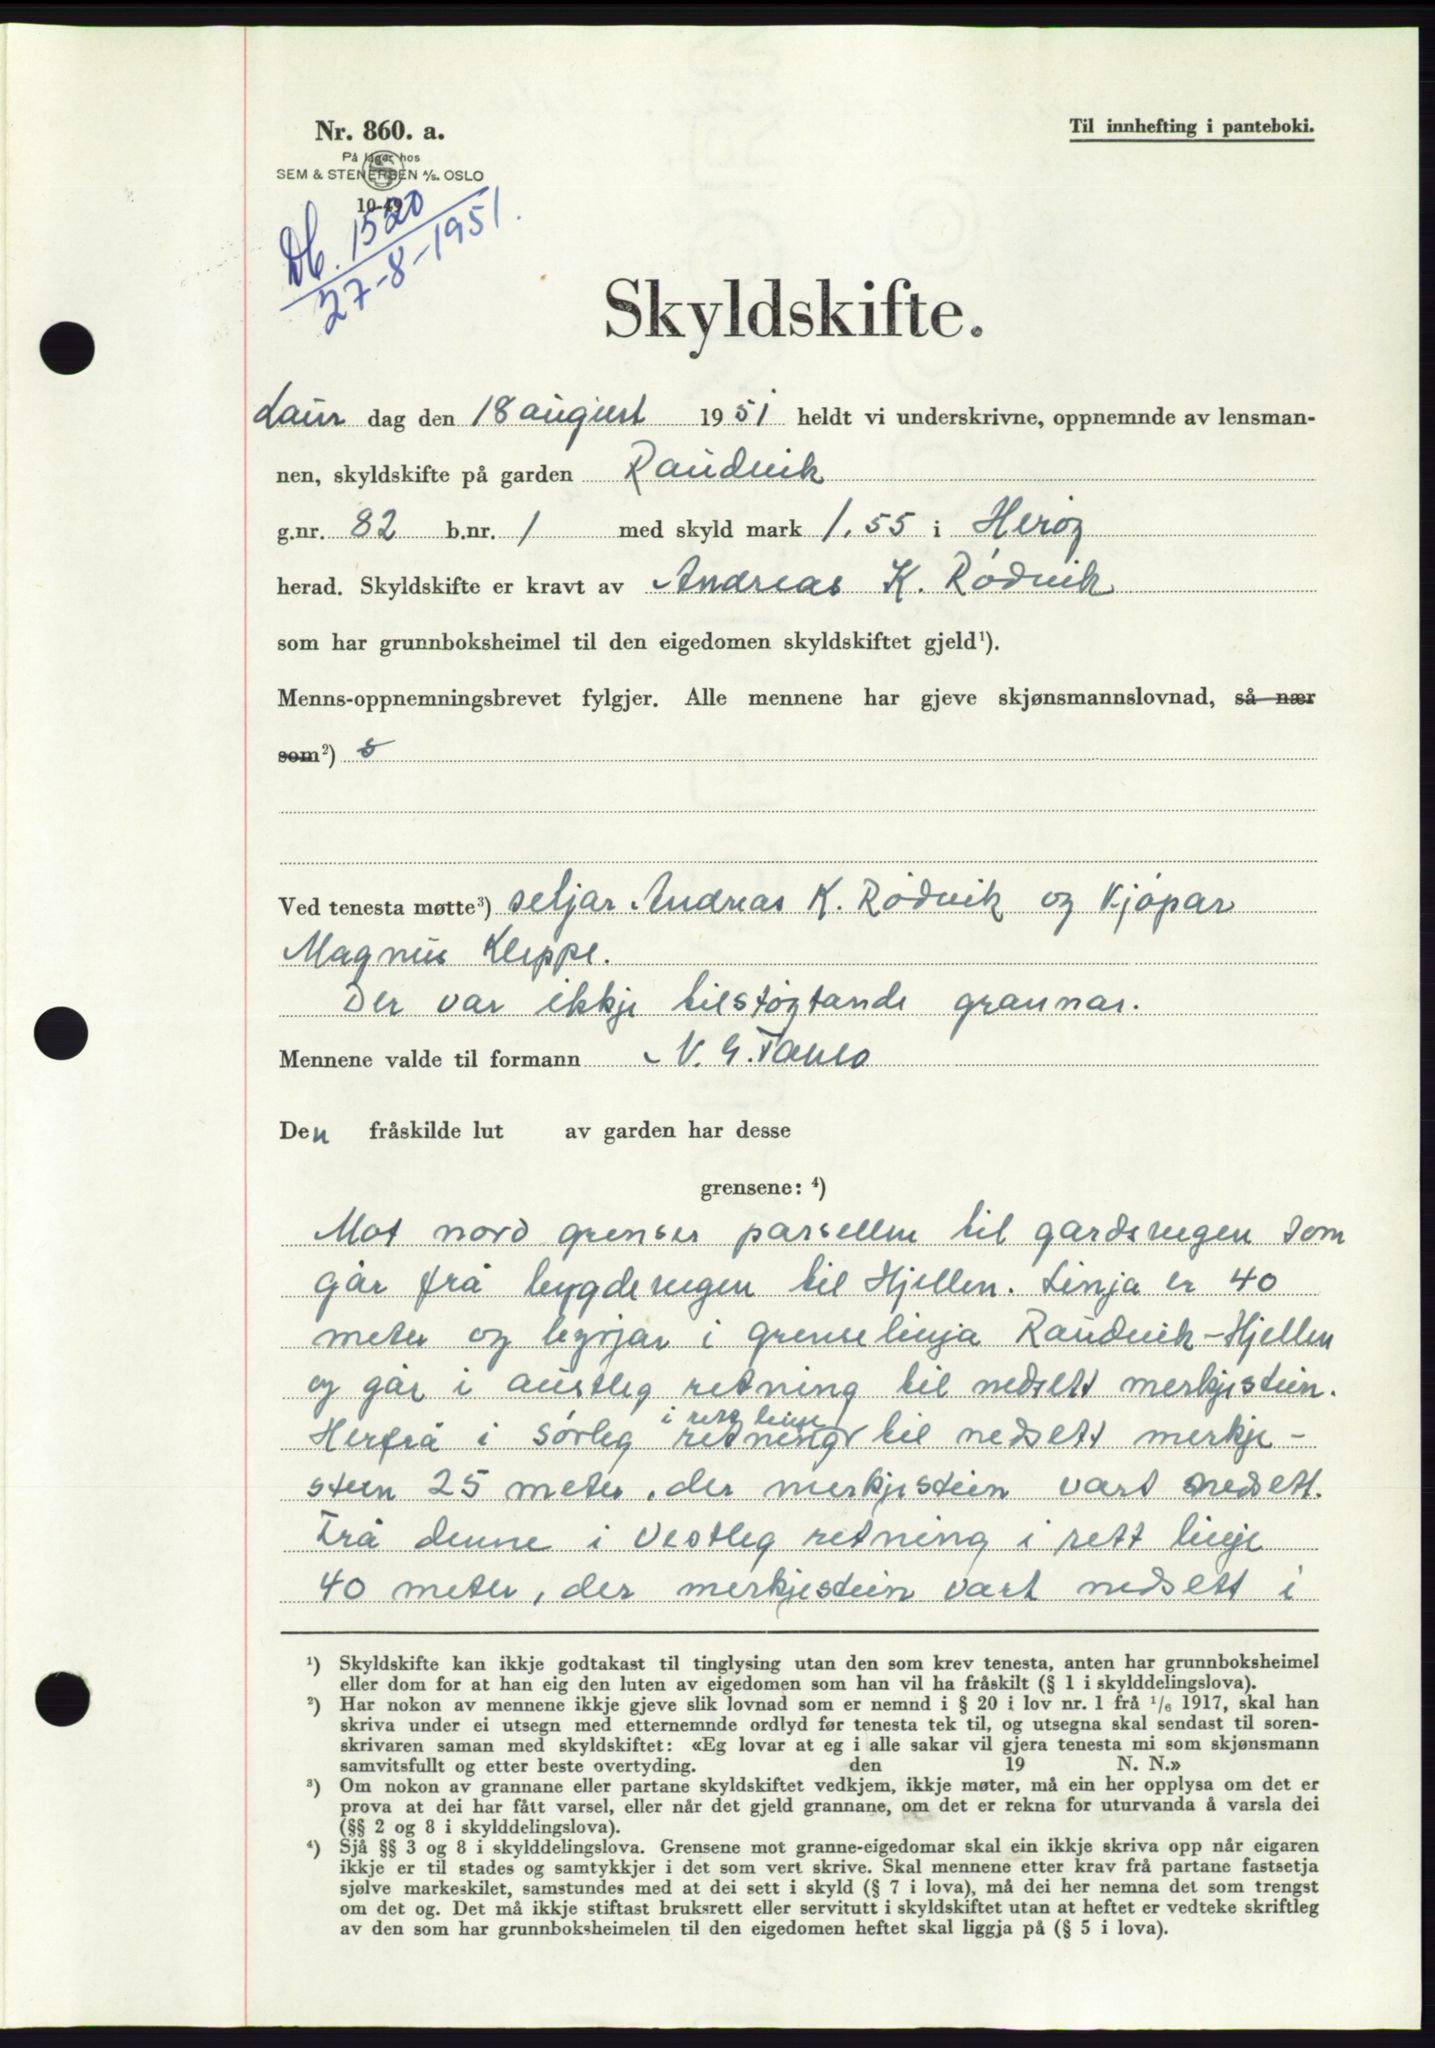 Nr. 860. a.
På lager hos
SEM & STENERSEN A/S. OSLO
10-49
Til innhefting i panteboki.
Db. 1520
27-8-1951.
Skyldskifte.
Laur dag den 18 august 1951 heldt vi underskrivne, oppnemnde av lensman-
nen, skyldskifte på garden Raudvik
g.nr. 82 b.nr. 1 med skyld mark 1,55 i Herøy
herad. Skyldskifte er kravt av Andreas K. Rødvik
som har grunnboksheimel til den eigedomen skyldskiftet gjeld¹).
Menns-oppnemningsbrevet fylgjer. Alle mennene har gjeve skjønsmannslovnad, så nær
som²)
Ved tenesta møtte³) seljar Andreas K. Rødvik og kjøpar
Magnus Kleppe.
Der var ikkje tilstøytande grannar.
Mennene valde til formann N. G.
Den fråskilde lut av garden har desse
grensene: ⁴)
Mot nord grenser parsellen til gardsvegen som
går frå bygdevegen til Hjellen. Linja er 40
meter og byrjar i grenselinja Raudvik-Hjellen
og går i austleg retning til nedsett merkjestein.
i rett linje
Herfrå i sørleg retning til nedsett merkje-
stein 25 meter, der merkjestein vart nedsett.
Frå denne i vestleg retning i rett linje
40 meter, der merkjestein vart nedsett i
¹) Skyldskifte kan ikkje godtakast til tinglysing utan den som krev tenesta, anten har grunnboksheimel
eller dom for at han eig den luten av eigedomen som han vil ha fråskilt (§ 1 i skylddelingslova).
²) Har nokon av mennene ikkje gjeve slik lovnad som er nemnd i § 20 i lov nr. 1 frå 1/6 1917, skal han
skriva under ei utsegn med etternemnde ordlyd før tenesta tek til, og utsegna skal sendast til soren-
skrivaren saman med skyldskiftet: «Eg lovar at eg i alle sakar vil gjera tenesta mi som skjønsmann
samvitsfullt og etter beste overtyding. den 19 N. N.»
³) Om nokon av grannane eller partane skyldskiftet vedkjem, ikkje møter, må ein her opplysa om det er
prova at dei har fått varsel, eller når det gjeld grannane, om det er rekna for uturvanda å varsla dei
(§§ 2 og 8 i skylddelingslova).
⁴) Sjå §§ 3 og 8 i skylddelingslova. Grensene mot granne-eigedomar skal ein ikkje skriva opp når eigaren
ikkje er til stades og samtykkjer i det som vert skrive. Skal mennene etter krav frå partane fastsetja
sjølve markeskilet, samstundes med at dei sett i skyld (§ 7 i lova), må dei her nemna det som trengst
om det og. Det må ikkje stiftast bruksrett eller servitutt i skyldskiftet utan at heftet er vedteke skriftleg
av den som har grunnboksheimelen til den eigedomen heftet skal liggja på (§ 5 i lova).